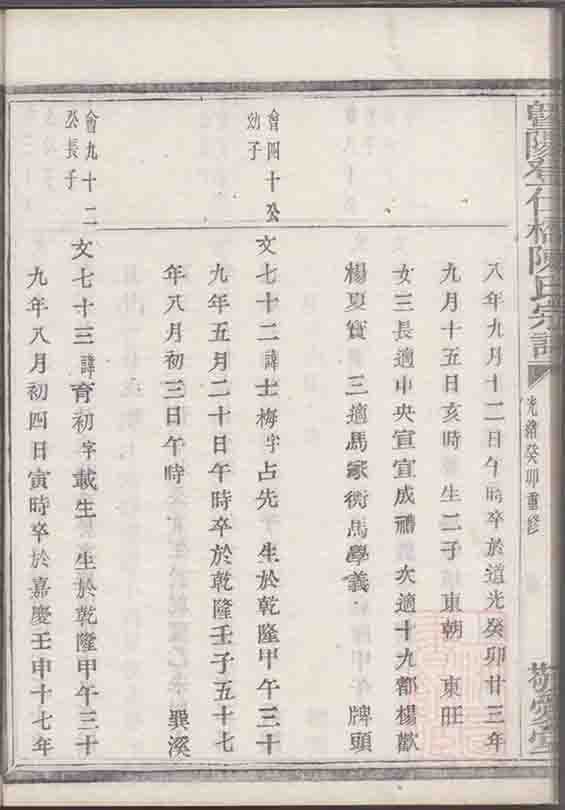 暨陽登仁橋陳氏宗譜
光緒癸卯重修
敬愛堂
八年九月十二日午時卒於道光癸卯廿三年
九月十五日亥時 生二子東朝 東旺
女三長適中央宣宜成禮 次適十九都楊歡
楊夏寶 三適馬家衖馬學義 牌頭
會四十公
幼子
文七十二諱士梅字占先 生於乾隆甲午三十
九年五月二十日午時卒於乾隆壬子五十七
年八月初三日午時 溪
會九十二
公長子
文七十三諱育初字載生 生於乾隆甲午三十
九年八月初四日寅時卒於嘉慶壬申十七年